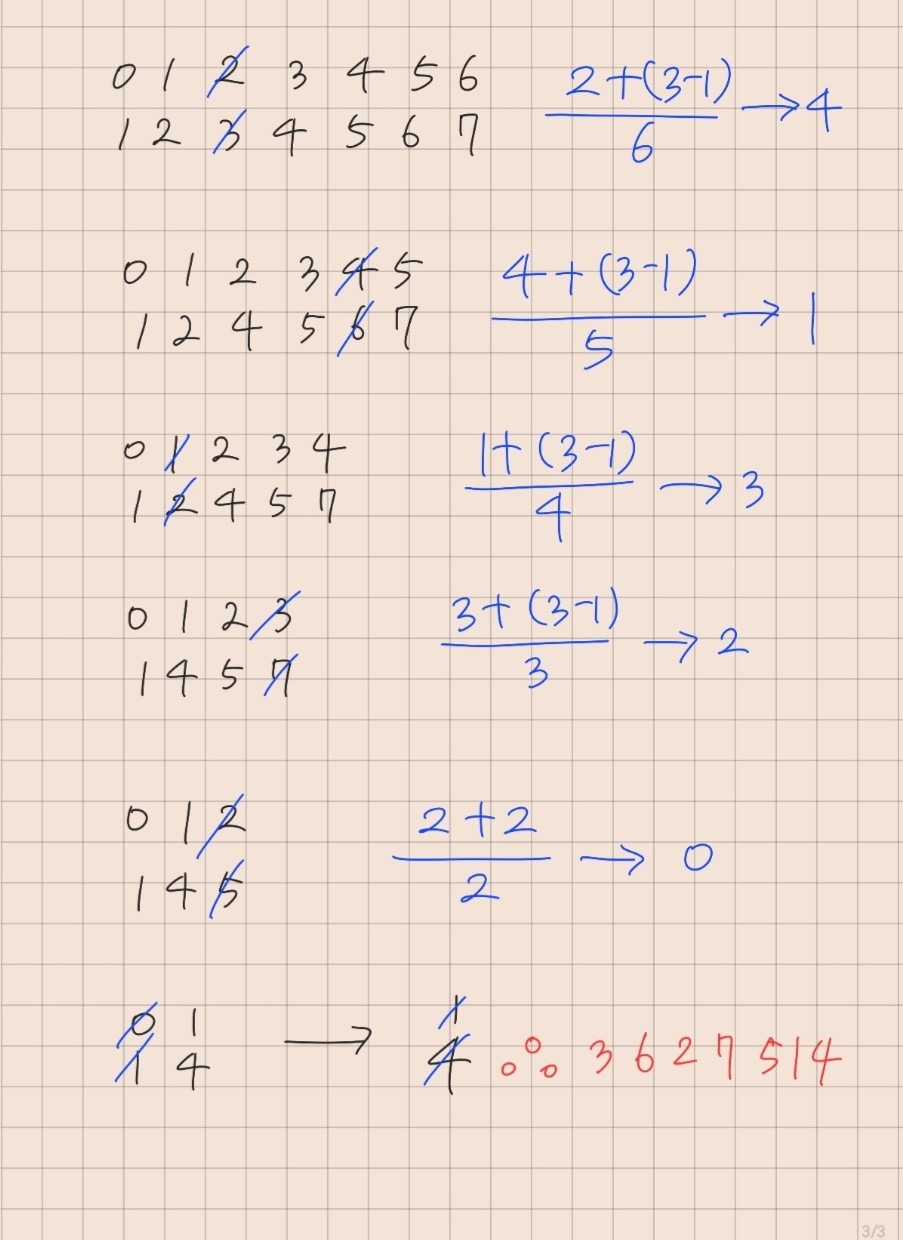 0 1 2 3 4 5 6
1 2 3 4 5 6 7
2+(3-1)
6
→4
0 1 2 3 4 5
1 2 4 5 6 7
4+(3-1)
5
→1
0 1 2 3 4
1 2 4 5 7
1+(3-1)
4
→3
0 1 2 3
1 4 5 7
3+(3-1)
3
→2
0 1 2
1 4 5
2+2
2
→0
0 1
1 4
→
1
4
∴ 3 6 2 7 5 1 4
3/3